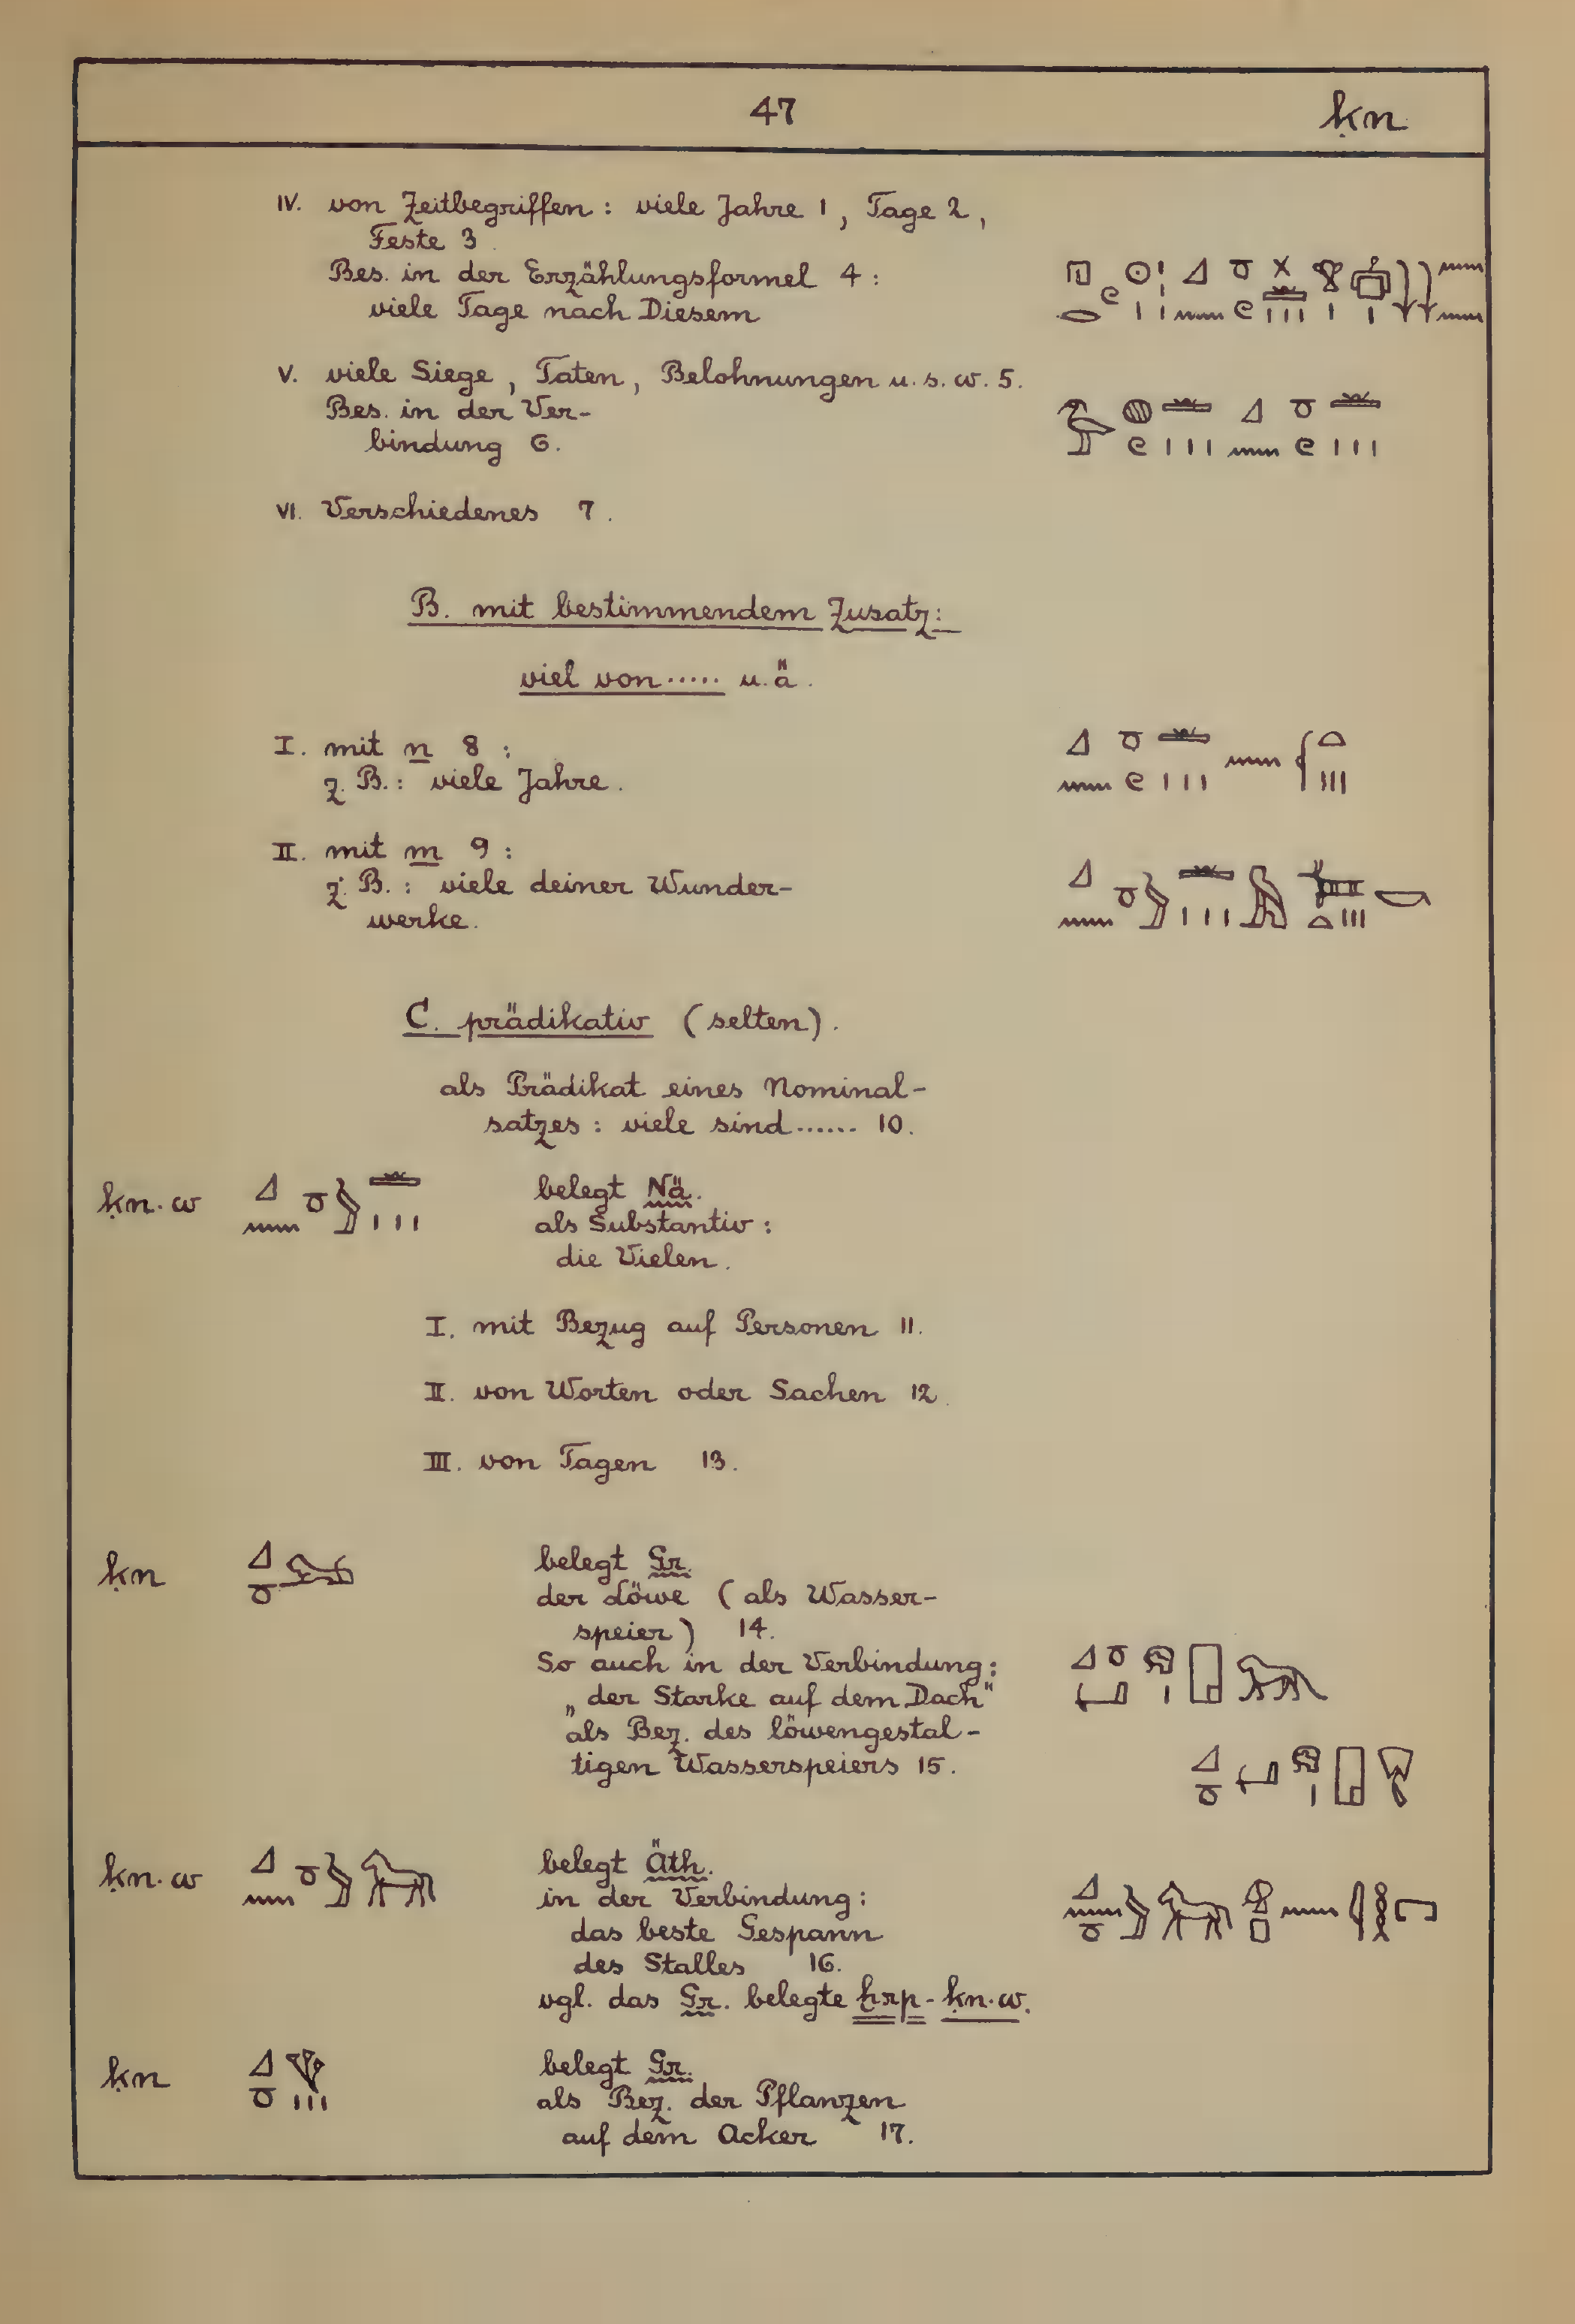 47 ḳn
IV. von Zeitbegriffen : viele Jahre 1 , Tage 2 ,
Feste 3 .
Bes. in der Erzählungsformel 4 :
viele Tage nach Diesem
V. viele Siege , Taten , Belohnungen u. s. w. 5.
Bes. in der Ver-
bindung 6.
VI. Verschiedenes 7 .
B. mit bestimmendem Zusatz:
viel von ..... u. ä .
I. mit n 8 :
z. B. : viele Jahre .
II. mit m 9 :
z. B. : viele deiner Wunder-
werke.
C. prädikativ (selten) .
als Prädikat eines Nominal-
satzes : viele sind ...... 10.
ḳn.w belegt Nä.
als Substantiv :
die Vielen .
I. mit Bezug auf Personen 11.
II. von Worten oder Sachen 12 .
III. von Tagen 13 .
ḳn belegt Gr.
der Löwe ( als Wasser-
speier ) 14.
So auch in der Verbindung :
„der Starke auf dem Dach"
als Bez. des löwengestal-
tigen Wasserspeiers 15 .
ḳn.w belegt Äth.
in der Verbindung :
das beste Gespann
des Stalles 16.
vgl. das Gr. belegte ḫrp - ḳn.w.
ḳn belegt Gr.
als Bez. der Pflanzen
auf dem Acker 17.